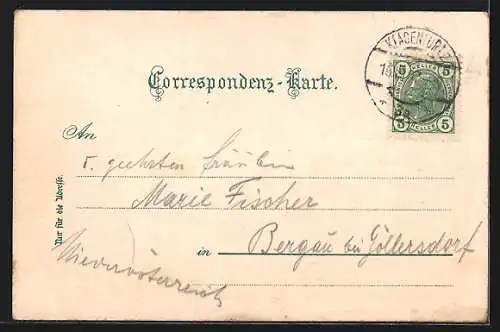 KLAGENFURT
Correspondenz-Karte.
5 HELLER 5
5 HELLER 5
An
geehrten Fräulein
Marie Fischer
in Bergau bei Göllersdorf
Niederösterreich
Nur für die Adresse.